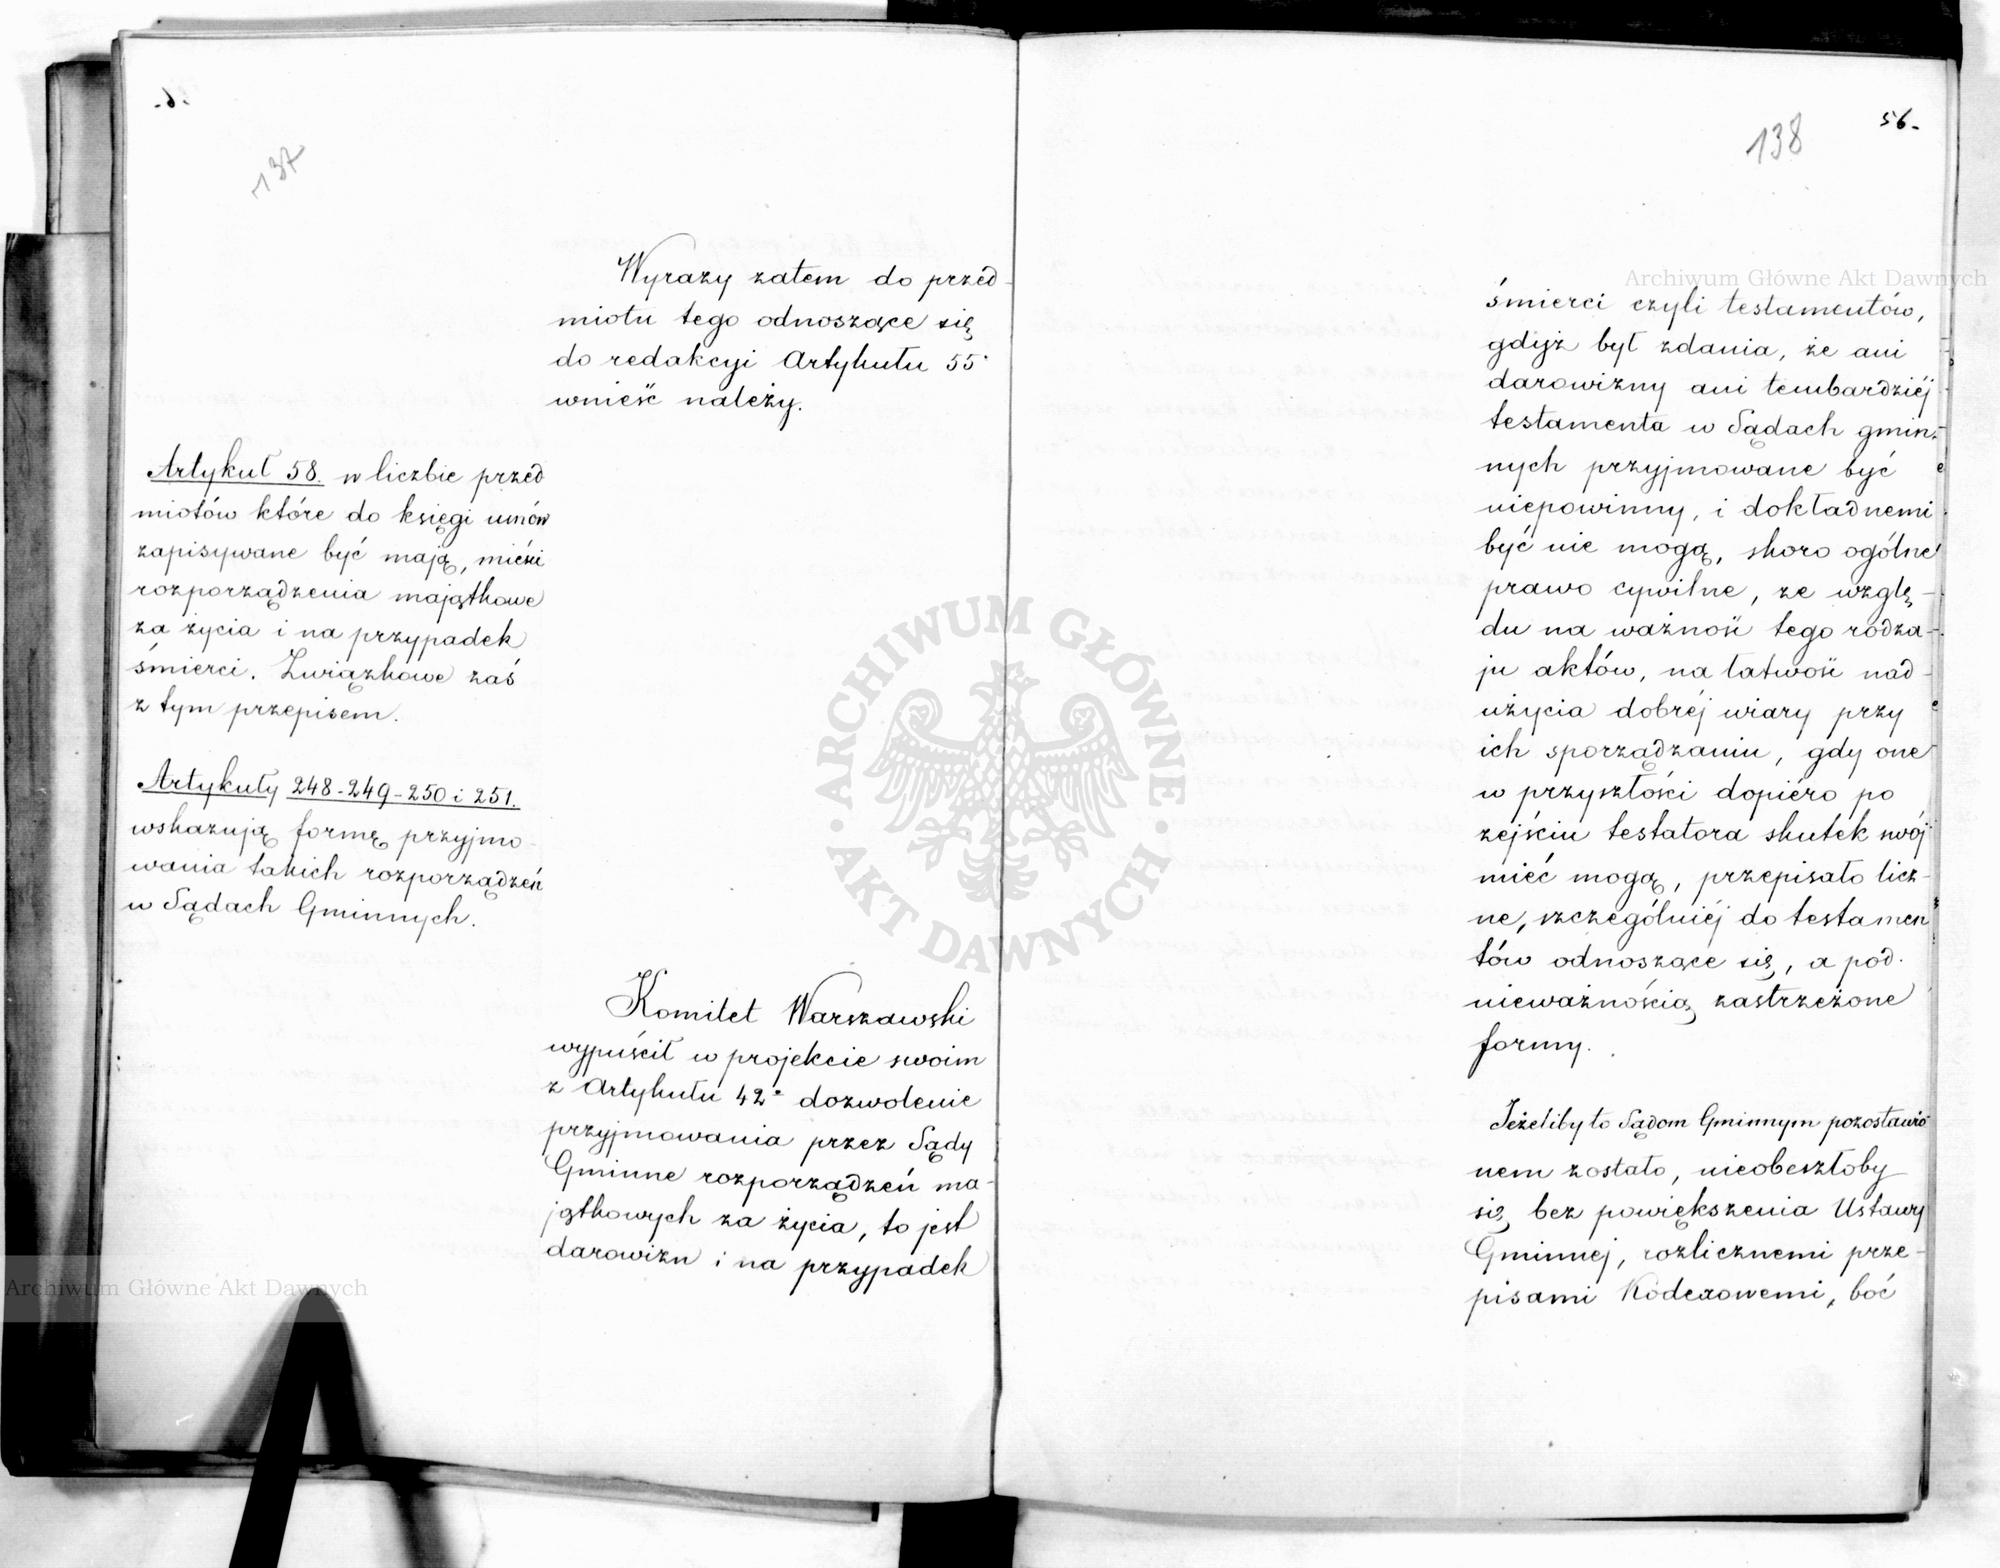 137
Wyrazy zatem do przéd-
miotu tego odnoszące się
do redakcyi Artykułu 55°
wnieść należy.
Artykuł 58. w liczbie przéd
miotów które do księgi umów
zapisywane być mają, mieści
rozporządzenia majątkowe
za życia i na przypadek
śmierci. Związkowe zaś
z tym przepisem.
Artykuły 248-249-250 i 251.
wskazują formę przyjmo-
wania takich rozporządzeń
w Sądach Gminnych.
Komitet Warszawski
wypuścił w projekcie swoim
z Artykułu 42° dozwolenie
przyjmowania przez Sądy
Gminne rozporządzeń ma-
jątkowych za życia, to jest
darowizn i na przypadek
138
56.
śmierci czyli testamentów,
gdyż był zdania, że ani
darowizny ani tembardziéj
testamenta w Sądach gmin-
nych przyjmowane być
niepowinny, i dokładnemi
być nie mogą, skoro ogólne
prawo cywilne, ze wzglę-
du na ważność tego rodza-
ju aktów, na łatwość nad-
użycia dobréj wiary przy
ich sporządzaniu, gdy one
w przyszłości dopiéro po
zejściu testatora skutek swój
mieć mogą, przepisało licz-
ne, szczególniéj do testamen
tów odnoszące się, a pod
nieważnością zastrzeżone
formy.
Jeżeliby to Sądom Gminnym pozostawio
nem zostało, nieobeszłoby
się bez powiększenia Ustawy
Gminnej, rozlicznemi prze-
pisami Kodexowemi, boć
ARCHIWUM GŁÓWNE
AKT DAWNYCH
Archiwum Główne Akt Dawnych
Archiwum Główne Akt Dawnych